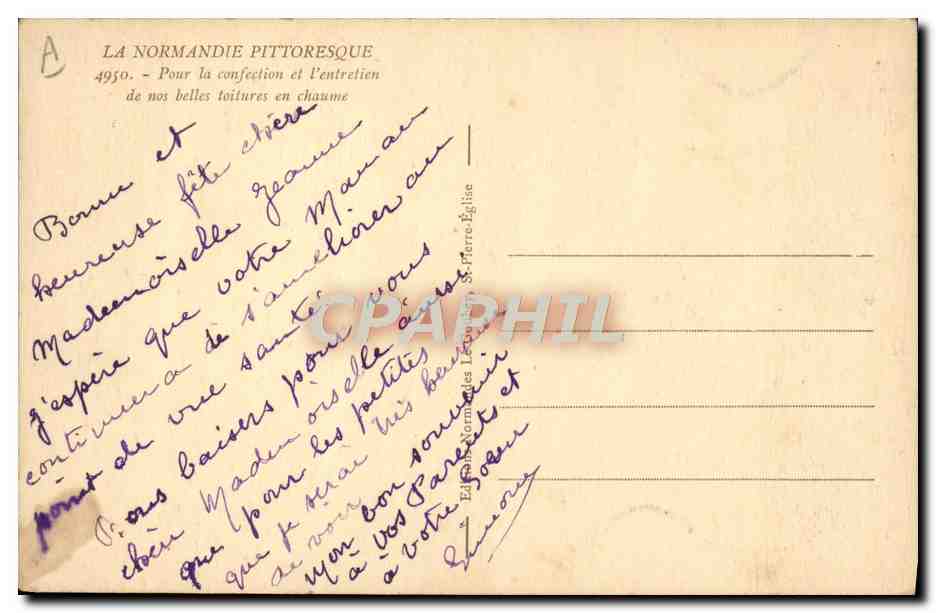 A
LA NORMANDIE PITTORESQUE
4950. - Pour la confection et l'entretien
de nos belles toitures en chaume
Bonne et
heureuse fête chère
Mademoiselle Jeanne
J'espère que votre Maman
continuera de s'améliorer au
point de vue santé
Bons baisers pour vous
chère Mademoiselle ainsi
que pour les petites
que je serai très heureuse
de voir
Mon bon souvenir
à vos Parents et
à votre soeur
Simone
Editions Normandes Le St-Pierre-Église
CPAPHIL